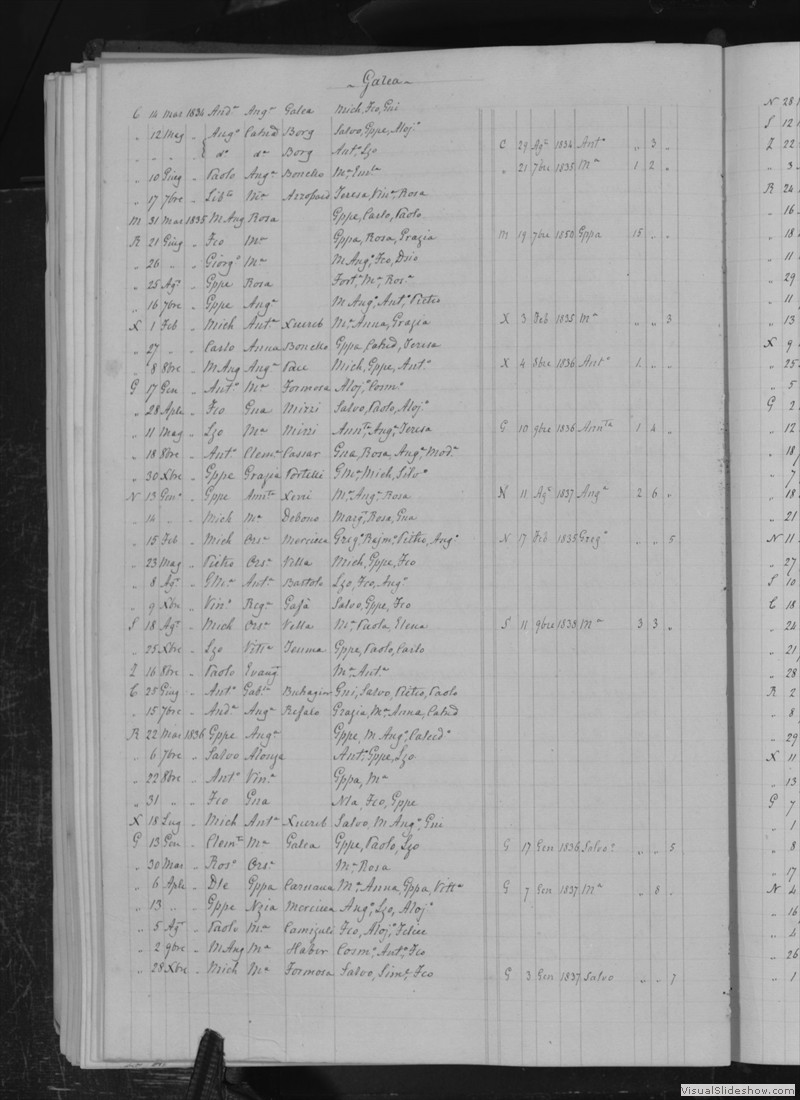 Galea
C 14 Mar 1834 Andª Angª Galea Mich, Fco, Gni
„ 12 Mag „ Angº Catnd Borg Salvo, Gppe, Alojº
„ „ „ dº dº Borg Antº, Lzo C 29 Agº 1834 Antº „ 3 „
„ 10 Giug „ Paolo Angª Bonello Mª, „ 21 7bre 1835 Mª 1 2 „
„ 17 7bre „ Mª Azzopard Teresa, Vinª, Rosa
M 31 Mar 1835 M Ang Rosa Gppe, Carlo, Paolo
R 21 Giug „ Fco Mª Gppa, Rosa, Grazia M 19 7bre 1850 Gppa 15 „ „
„ 26 „ „ Giorgº Mª M Angº, Fco,
„ 25 Agº „ Gppe Rosa Fortª, Mª, Rosª
„ 16 7bre „ Gppe Angª M Angº, Antº, Pietro
X 1 Feb „ Mich Antª Xuereb Mª, Anna, Grazia X 3 Feb 1835 Mª „ „ 3
„ 27 „ „ Carlo Anna Bonello Gppa, Catnd, Teresa
„ 8 8bre „ M Ang Angª Pace Mich, Gppe, Antº X 4 8bre 1836 Antº 1 „ „
G 17 Gen „ Antº Mª Formosa Alojº, Cosmº
„ 28 Aple „ Fco Gna Mizzi Salvo, Paolo, Alojº
„ 11 Mag „ Lzo Mª Mizzi Annta, Angª, Teresa G 10 9bre 1836 Annta 1 4 „
„ 18 8bre „ Antº Clemª Cassar Gna, Rosa, Angª, Madª
„ 30 Xbre „ Gppe Grazia Portelli GMª, Mich, Silvº
N 13 Genº „ Gppe Annta Xerri Mª, Angª, Rosa N 11 Agº 1837 Angª 2 6 „
„ 14 „ „ Mich Mª Debono Margª, Rosa, Gna
„ 15 Feb „ Mich Orsª Mercieca Gregº, Rajmº, Pietro, Angº N 17 Feb 1835 Gregº „ „ 5
„ 23 Mag „ Pietro Orsª Vella Mich, Gppe, Fco
„ 8 Agº „ GMª Antª Bartolo Lzo, Fco, Angº
„ 9 Xbre „ Vinº Regª Gafà Salvo, Gppe, Fco
S 18 Agº „ Mich Orsª Vella Mª, Paola, Elena S 11 9bre 1838 Mª 3 3 „
„ 25 Xbre „ Lzo Vitta Teuma Gppe, Paolo, Carlo
Z 16 8bre „ Paolo Evang Mª, Antª
C 25 Giug „ Antº Gabla Buhagiar Gni, Salvo, Pietro, Paolo
„ 15 7bre „ Andª Angª Refalo Grazia, Mª, Anna, Catnd
R 22 Mar 1836 Gppe Angª Gppe, M Angº, Calcedº
„ 6 7bre „ Salvo Alonza Antº, Gppe, Lzo
„ 22 8bre „ Antº Vinª Gppa, Mª
„ 31 „ „ Fco Gna Nla, Fco, Gppe
X 18 Lug „ Mich Antª Xuereb Salvo, M Angº, Gni
G 13 Gen „ Clemte Mª Galea Gppe, Paolo, Lzo G 17 Gen 1836 Salvoº „ „ 5
„ 30 Mar „ Rosº Orsª Mª, Rosa
„ 6 Aple „ Dle Gppa Caruana Mª, Anna, Gppa, Vitta G 7 Gen 1837 Mª „ 8 „
„ 13 „ „ Gppe Nzia Mercieca Angº, Lzo, Alojº
„ 5 Agº „ Paolo Mª Camizuli Fco, Alojº, Felice
„ 2 9bre „ M Ang Mª Haber Cosmº, Antº, Fco
„ 28 Xbre „ Mich Mª Formosa Salvo, Simº, Fco G 3 Gen 1837 Salvo „ „ 7
N 28
S 12
Z 22
„ 3
R 24
„ 16
„ 18
„ 11
„ 29
„ 11
„ 13
X 9
„ 25
„ 5
G 2
„ 12
„ 18
„ 7
„ 18
„ 21
N 11
„ 27
S 10
C 18
„ 24
„ 21
„ 28
R 2
„ 8
„ 29
X 11
„ 13
G 7
„ 1
„ 8
„ 17
N 4
„ 16
„ 4
„ 26
„ 1
VisualSlideshow.com